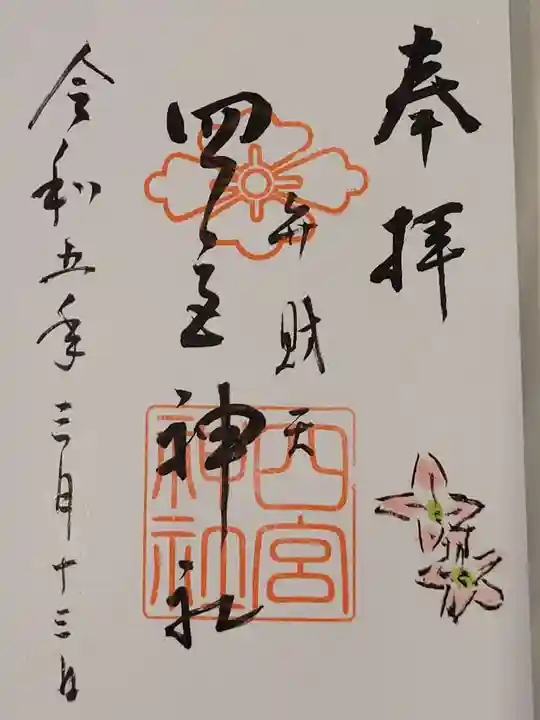 奉拝
弁財天
四宮神社
四宮神社
令和五年三月十三日